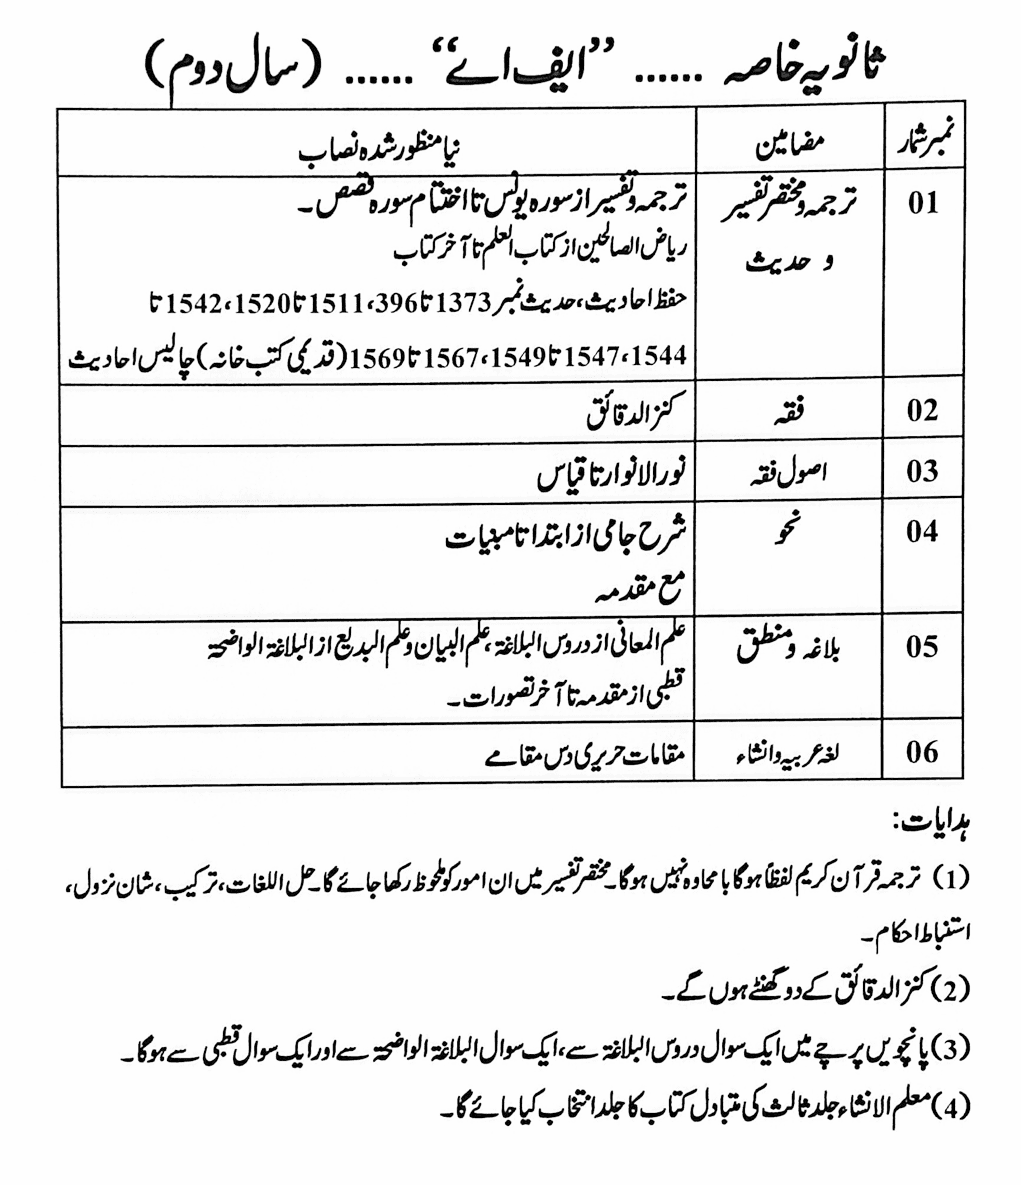 ثانویہ خاصہ ...... ”ایف اے“ ...... (سال دوم)
نمبر شمار مضامین نیا منظور شدہ نصاب
01 ترجمہ و مختصر تفسیر ترجمہ و تفسیر از سورہ یونس تا اختتام سورہ قصص۔
و حدیث ریاض الصالحین از کتاب العلم تا آخر کتاب
حفظ احادیث، حدیث نمبر 1373 تا 396، 1511 تا 1520، 1542 تا
1544، 1547 تا 1549، 1567 تا 1569 (قدیمی کتب خانہ) چالیس احادیث
02 فقہ کنز الدقائق
03 اصول فقہ نور الانوار تا قیاس
04 نحو شرح جامی از ابتدا تا مبنیات
مع مقدمہ
05 بلاغہ و منطق علم المعانی از دروس البلاغۃ، علم البیان و علم البدیع از البلاغۃ الواضحۃ
قطبی از مقدمہ تا آخر تصورات۔
06 لغہ عربیہ وانشاء مقامات حریری دس مقامے
ہدایات:
(1) ترجمہ قرآن کریم لفظاً ہوگا با محاورہ نہیں ہوگا۔ مختصر تفسیر میں ان امور کو ملحوظ رکھا جائے گا۔ حل اللغات، ترکیب، شان نزول،
استنباط احکام۔
(2) کنز الدقائق کے دو گھنٹے ہوں گے۔
(3) پانچویں پرچے میں ایک سوال دروس البلاغۃ سے، ایک سوال البلاغۃ الواضحۃ سے اور ایک سوال قطبی سے ہوگا۔
(4) معلم الانشاء جلد ثالث کی متبادل کتاب کا جلد انتخاب کیا جائے گا۔